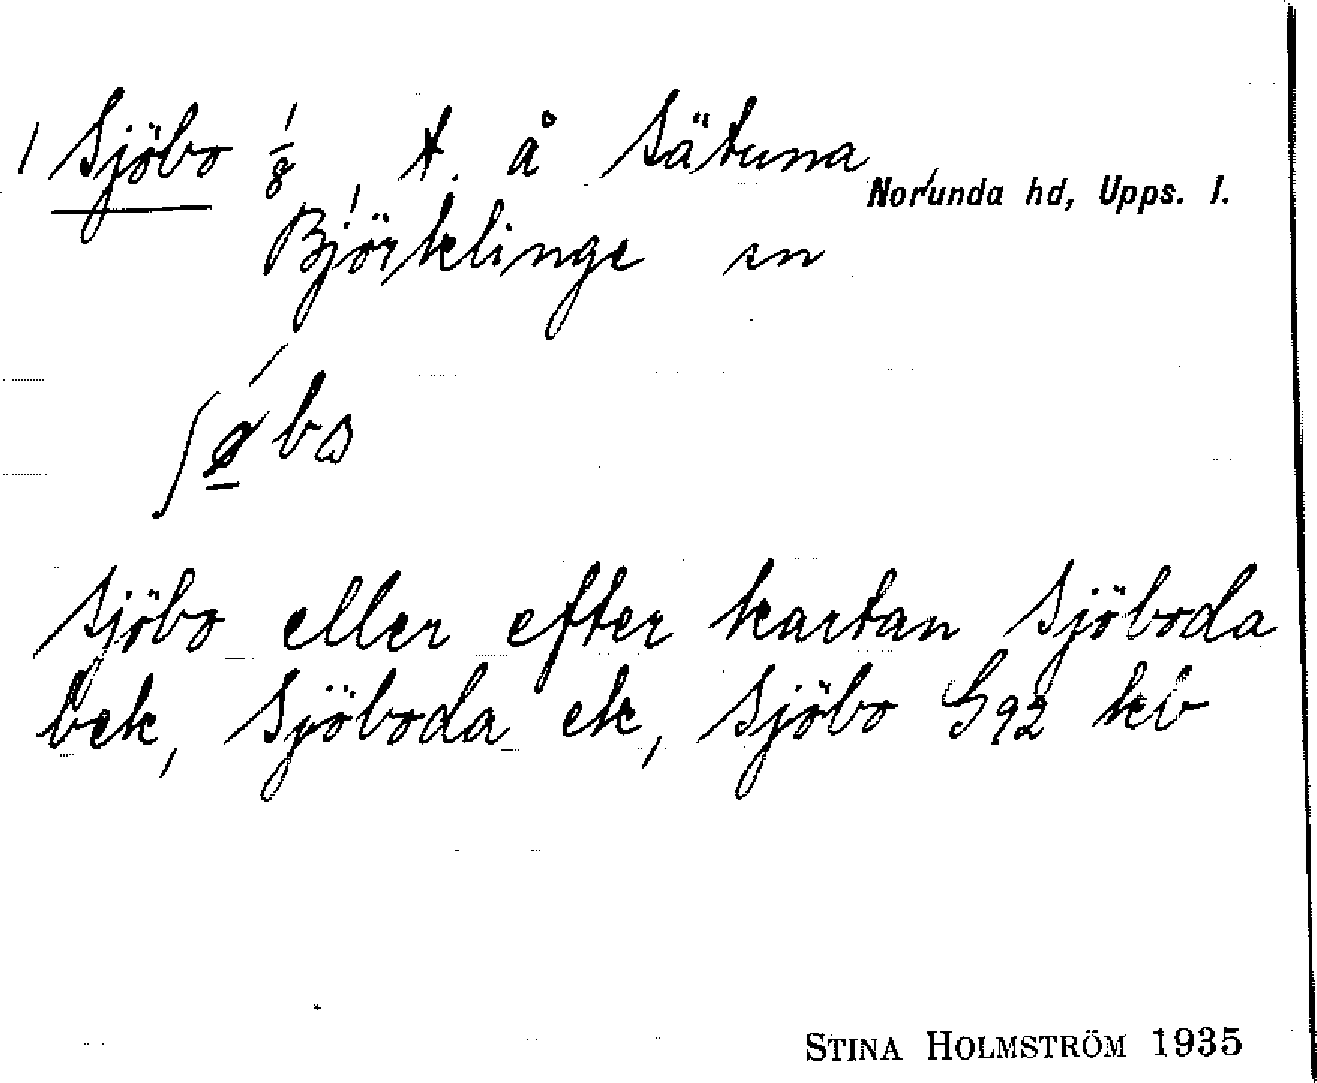 Sjöbo 1/8 t. å Sätuna
Norunda hd, Upps. l.
Björklinge sn
Sjöbo eller efter kartan Sjöboda
bek, Sjöboda ek, Sjöbo G92 kb
STINA HOLMSTRÖM 1935